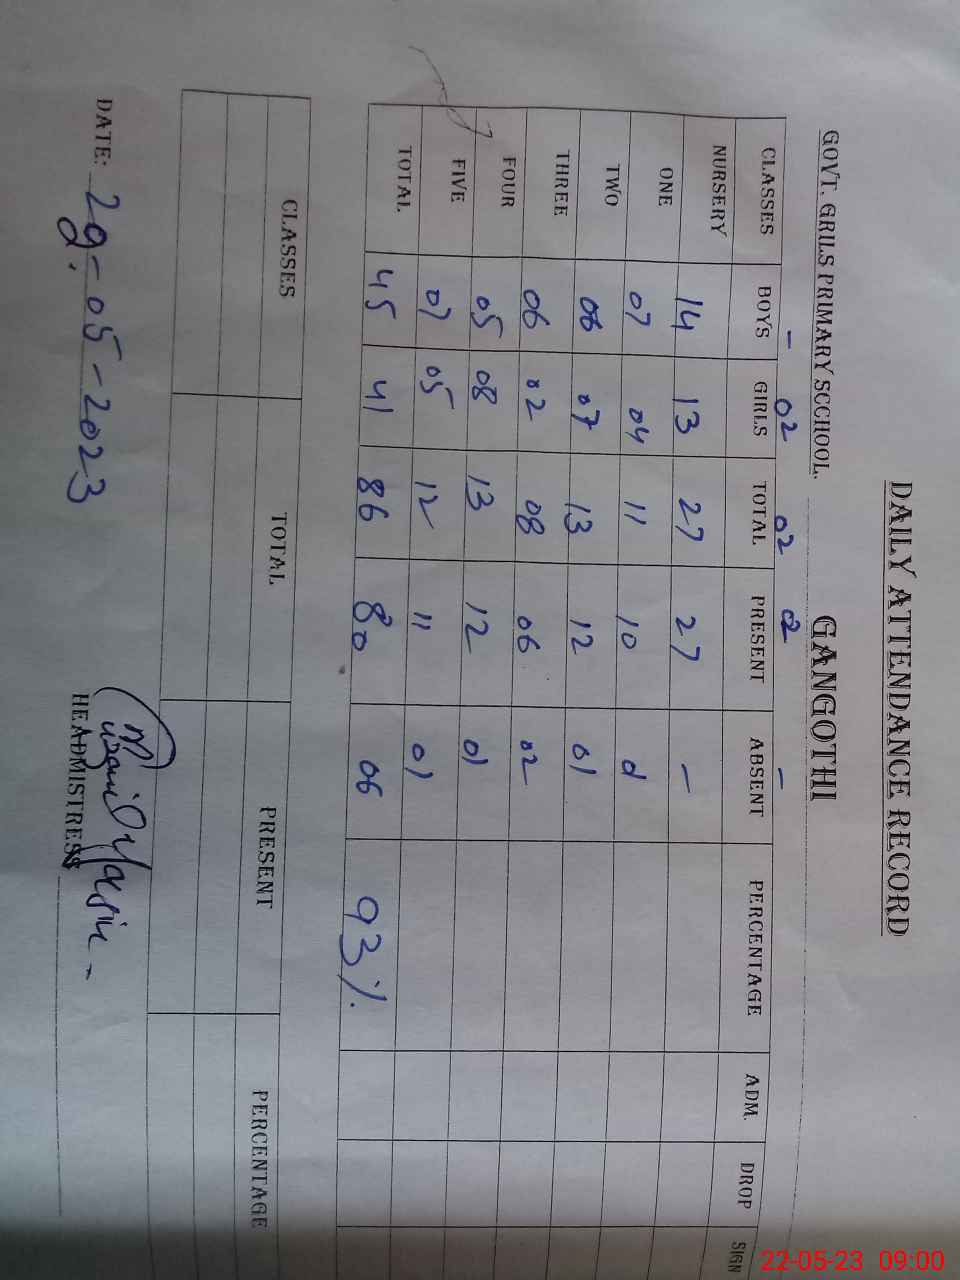 DAILY ATTENDANCE RECORD
GOVT. GRILS PRIMARY SCCHOOL. GANGOTHI
- 02 02 02 -
CLASSES BOYS GIRLS TOTAL PRESENT ABSENT PERCENTAGE ADM. DROP SIGN
NURSERY 14 13 27 27 -
ONE 07 04 11 10
TWO 06 07 13 12 01
THREE 06 02 08 06 02
FOUR 05 08 13 12 01
FIVE 07 05 12 11 01
TOTAL 45 41 86 80 06 93%.
CLASSES TOTAL PRESENT PERCENTAGE
DATE: 29-05-2023 HEADMISTRESS
22-05-23 09:00